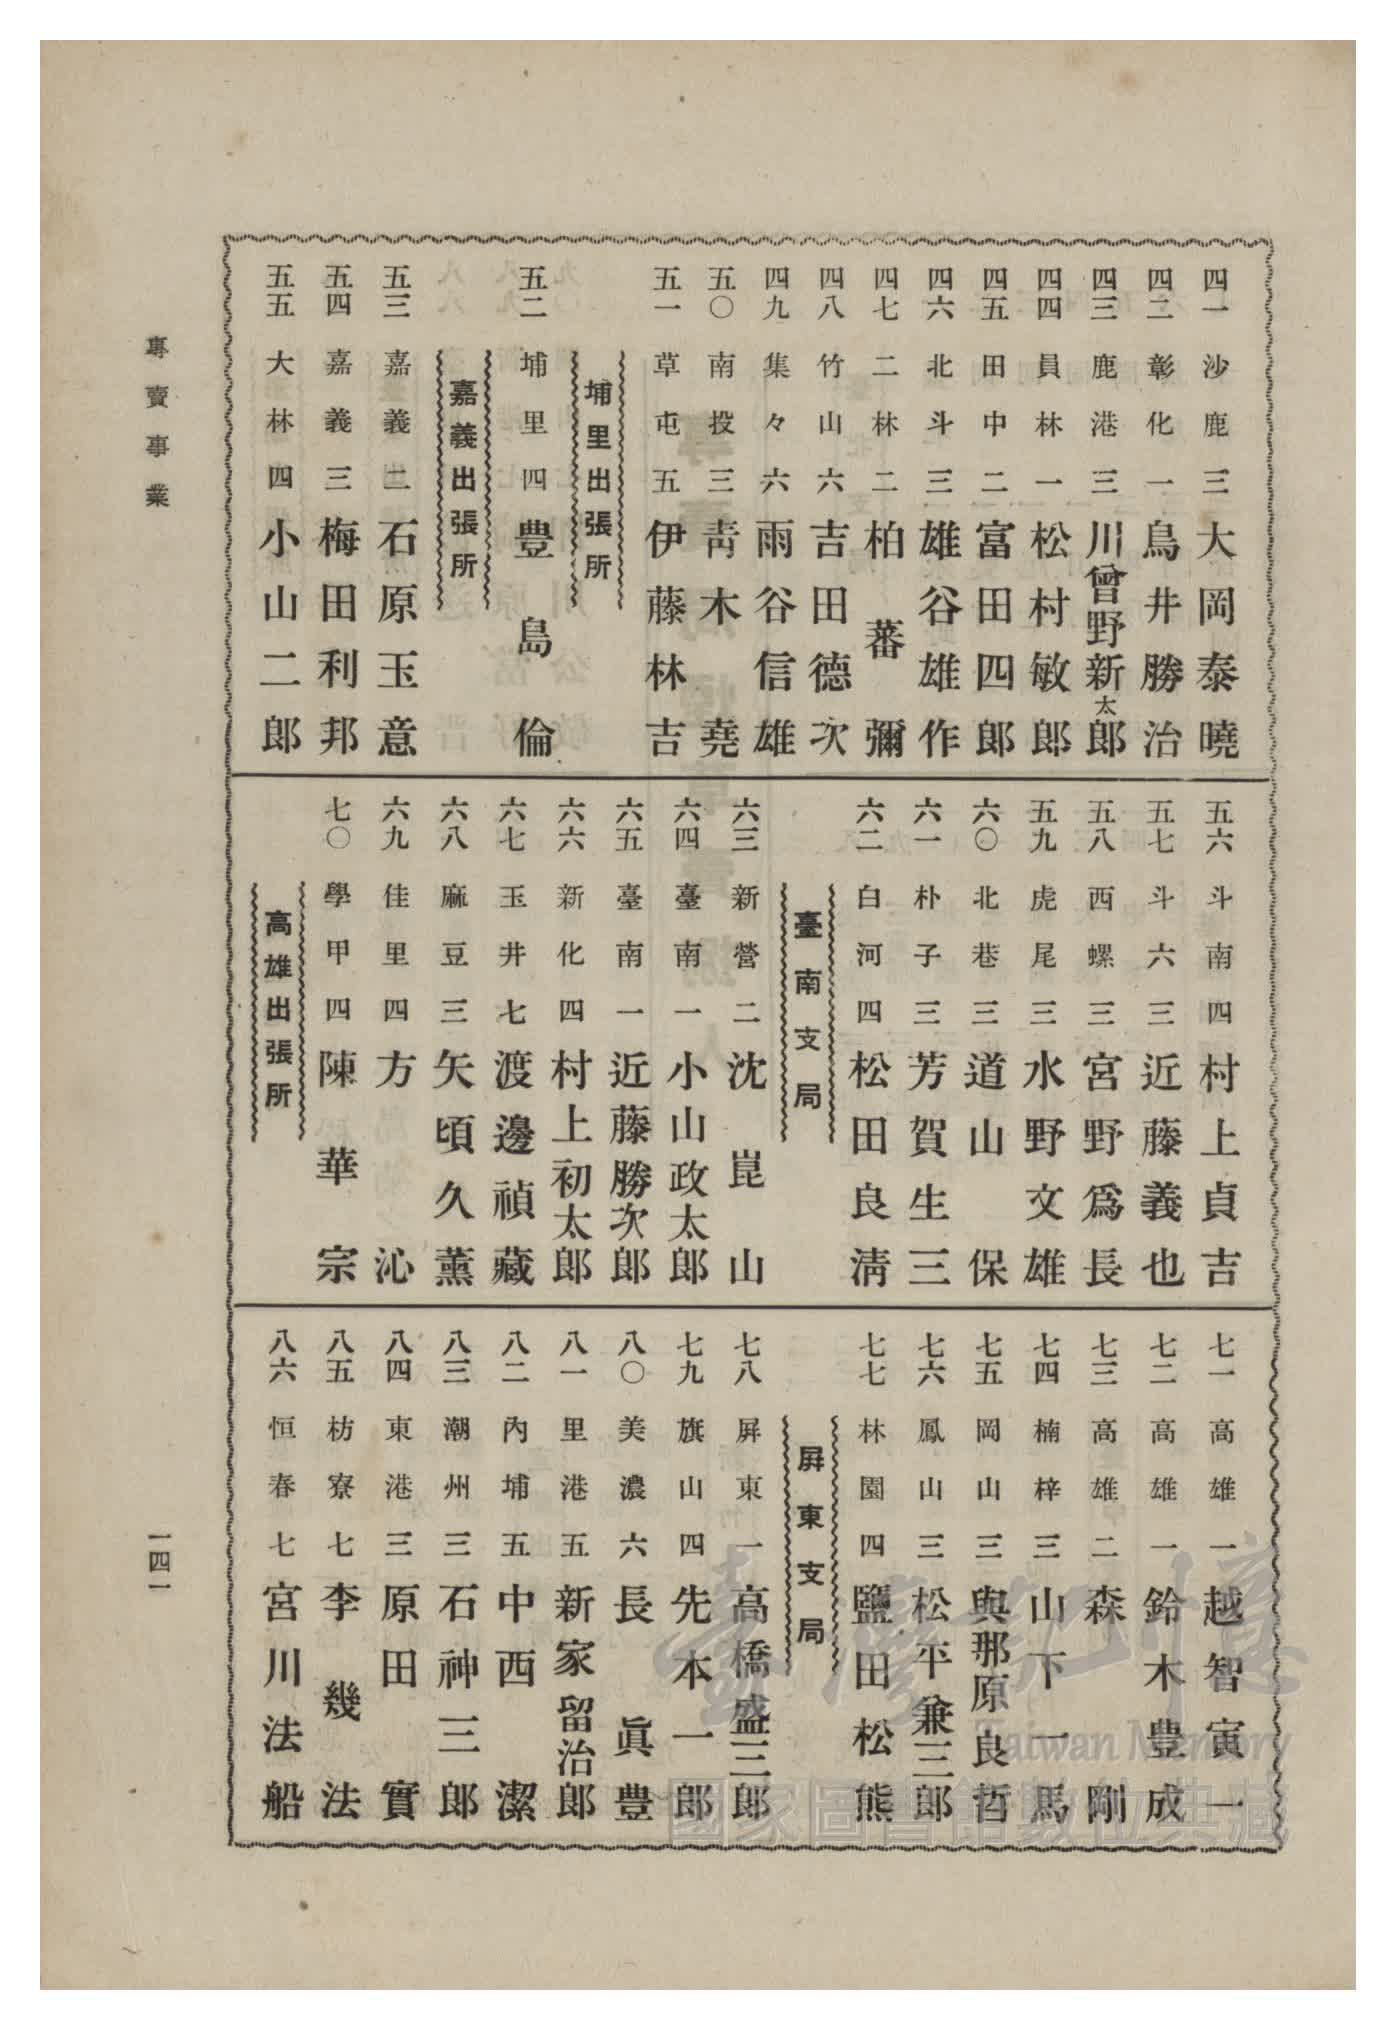 四一 沙鹿 三 大岡泰曉
四二 彰化 一 鳥井勝治
四三 鹿港 三 川曾野新太郎
四四 員林 一 松村敏郎
四五 田中 二 富田四郎
四六 北斗 三 雄谷雄作
四七 二林 二 柏蕃彌
四八 竹山 六 吉田德次
四九 集々 六 雨谷信雄
五〇 南投 三 靑木堯
五一 草屯 五 伊藤林吉
埔里出張所
五二 埔里 四 豊島倫
嘉義出張所
五三 嘉義 二 石原玉意
五四 嘉義 三 梅田利邦
五五 大林 四 小山二郎
五六 斗南 四 村上貞吉
五七 斗六 三 近藤義也
五八 西螺 三 宮野爲長
五九 虎尾 三 水野文雄
六〇 北巷 三 道山保
六一 朴子 三 芳賀生三
六二 白河 四 松田良淸
臺南支局
六三 新營 二 沈崑山
六四 臺南 一 小山政太郎
六五 臺南 一 近藤勝次郎
六六 新化 四 村上初太郎
六七 玉井 七 渡邊禎藏
六八 麻豆 三 矢頃久薰
六九 佳里 四 方沁
七〇 學甲 四 陳華宗
高雄出張所
七一 高雄 一 越智寅一
七二 高雄 一 鈴木豊成
七三 高雄 二 森剛
七四 楠梓 三 山下一馬
七五 岡山 三 與那原良哲
七六 鳳山 三 松平兼三郎
七七 林園 四 鹽田松熊
屏東支局
七八 屏東 一 高橋盛三郎
七九 旗山 四 先本一郎
八〇 美濃 六 長眞豊
八一 里港 五 新家留治郎
八二 內埔 五 中西潔
八三 潮州 三 石神三郎
八四 東港 三 原田實
八五 枋寮 七 李幾法
八六 恒春 七 宮川法船
專賣事業
一四一
臺灣記憶
Taiwan Memory
國家圖書館數位典藏